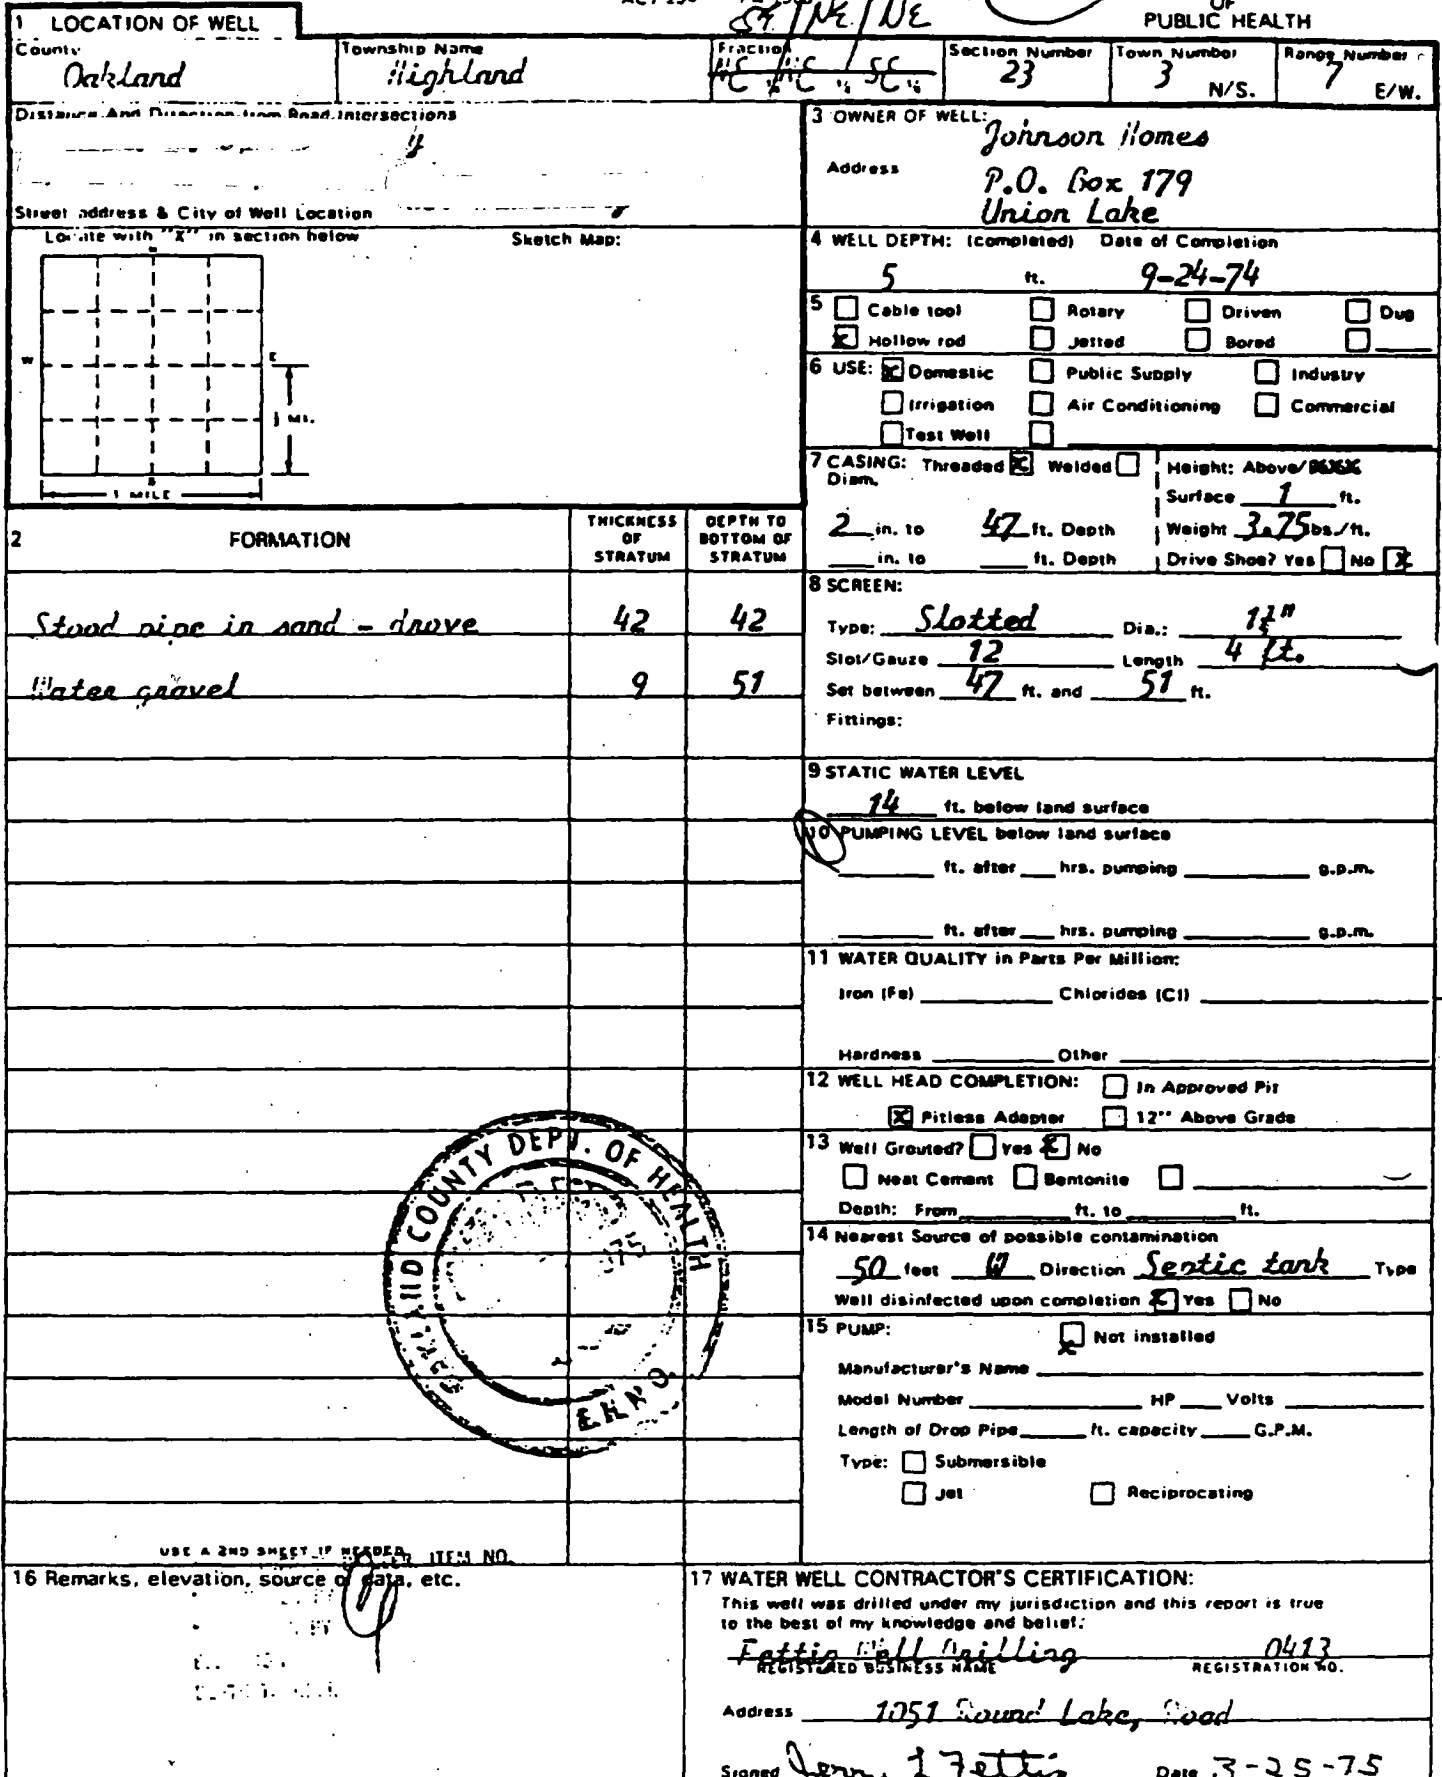 OF
PUBLIC HEALTH
SE / NE / NE
1 LOCATION OF WELL
County
Oakland
Township Name
Highland
Fraction
¼ ¼ SE ¼
Section Number
23
Town Number
3 N/S.
Range Number
7 E/W.
Distance And Direction from Road Intersections
Street address & City of Well Location
Locate with "X" in section below
Sketch Map:
W
E
½ MI.
1 MILE
3 OWNER OF WELL:
Johnson Homes
Address
P.O. Box 179
Union Lake
4 WELL DEPTH: (completed) Date of Completion
5 ft. 9-24-74
5 Cable tool Rotary Driven Dug
X Hollow rod Jetted Bored
6 USE: X Domestic Public Supply Industry
Irrigation Air Conditioning Commercial
Test Well
7 CASING: Threaded X Welded
Diam.
Height: Above/
Surface 1 ft.
2 in. to 47 ft. Depth
Weight 3.75 lbs./ft.
in. to ft. Depth
Drive Shoe? Yes No X
2 FORMATION
THICKNESS OF STRATUM
DEPTH TO BOTTOM OF STRATUM
Stood pipe in sand - drove 42 42
Water gravel 9 51
8 SCREEN:
Type: Slotted Dia.: 1¼"
Slot/Gauze 12 Length 4 ft.
Set between 47 ft. and 51 ft.
Fittings:
9 STATIC WATER LEVEL
14 ft. below land surface
10 PUMPING LEVEL below land surface
ft. after hrs. pumping g.p.m.
ft. after hrs. pumping g.p.m.
11 WATER QUALITY in Parts Per Million:
Iron (Fe) Chlorides (Cl)
Hardness Other
12 WELL HEAD COMPLETION: In Approved Pit
X Pitless Adapter 12" Above Grade
13 Well Grouted? Yes X No
Neat Cement Bentonite
Depth: From ft. to ft.
14 Nearest Source of possible contamination
50 feet W Direction Septic tank Type
Well disinfected upon completion X Yes No
15 PUMP: X Not installed
Manufacturer's Name
Model Number HP Volts
Length of Drop Pipe ft. capacity G.P.M.
Type: Submersible
Jet Reciprocating
OAKLAND COUNTY DEPT. OF HEALTH
USE A 2ND SHEET IF NEEDED
ITEM NO.
16 Remarks, elevation, source of data, etc.
17 WATER WELL CONTRACTOR'S CERTIFICATION:
This well was drilled under my jurisdiction and this report is true
to the best of my knowledge and belief.
Fettis Well Drilling 0413
REGISTERED BUSINESS NAME REGISTRATION NO.
Address 1051 Round Lake, Road
Signed Fettis Date 3-25-75